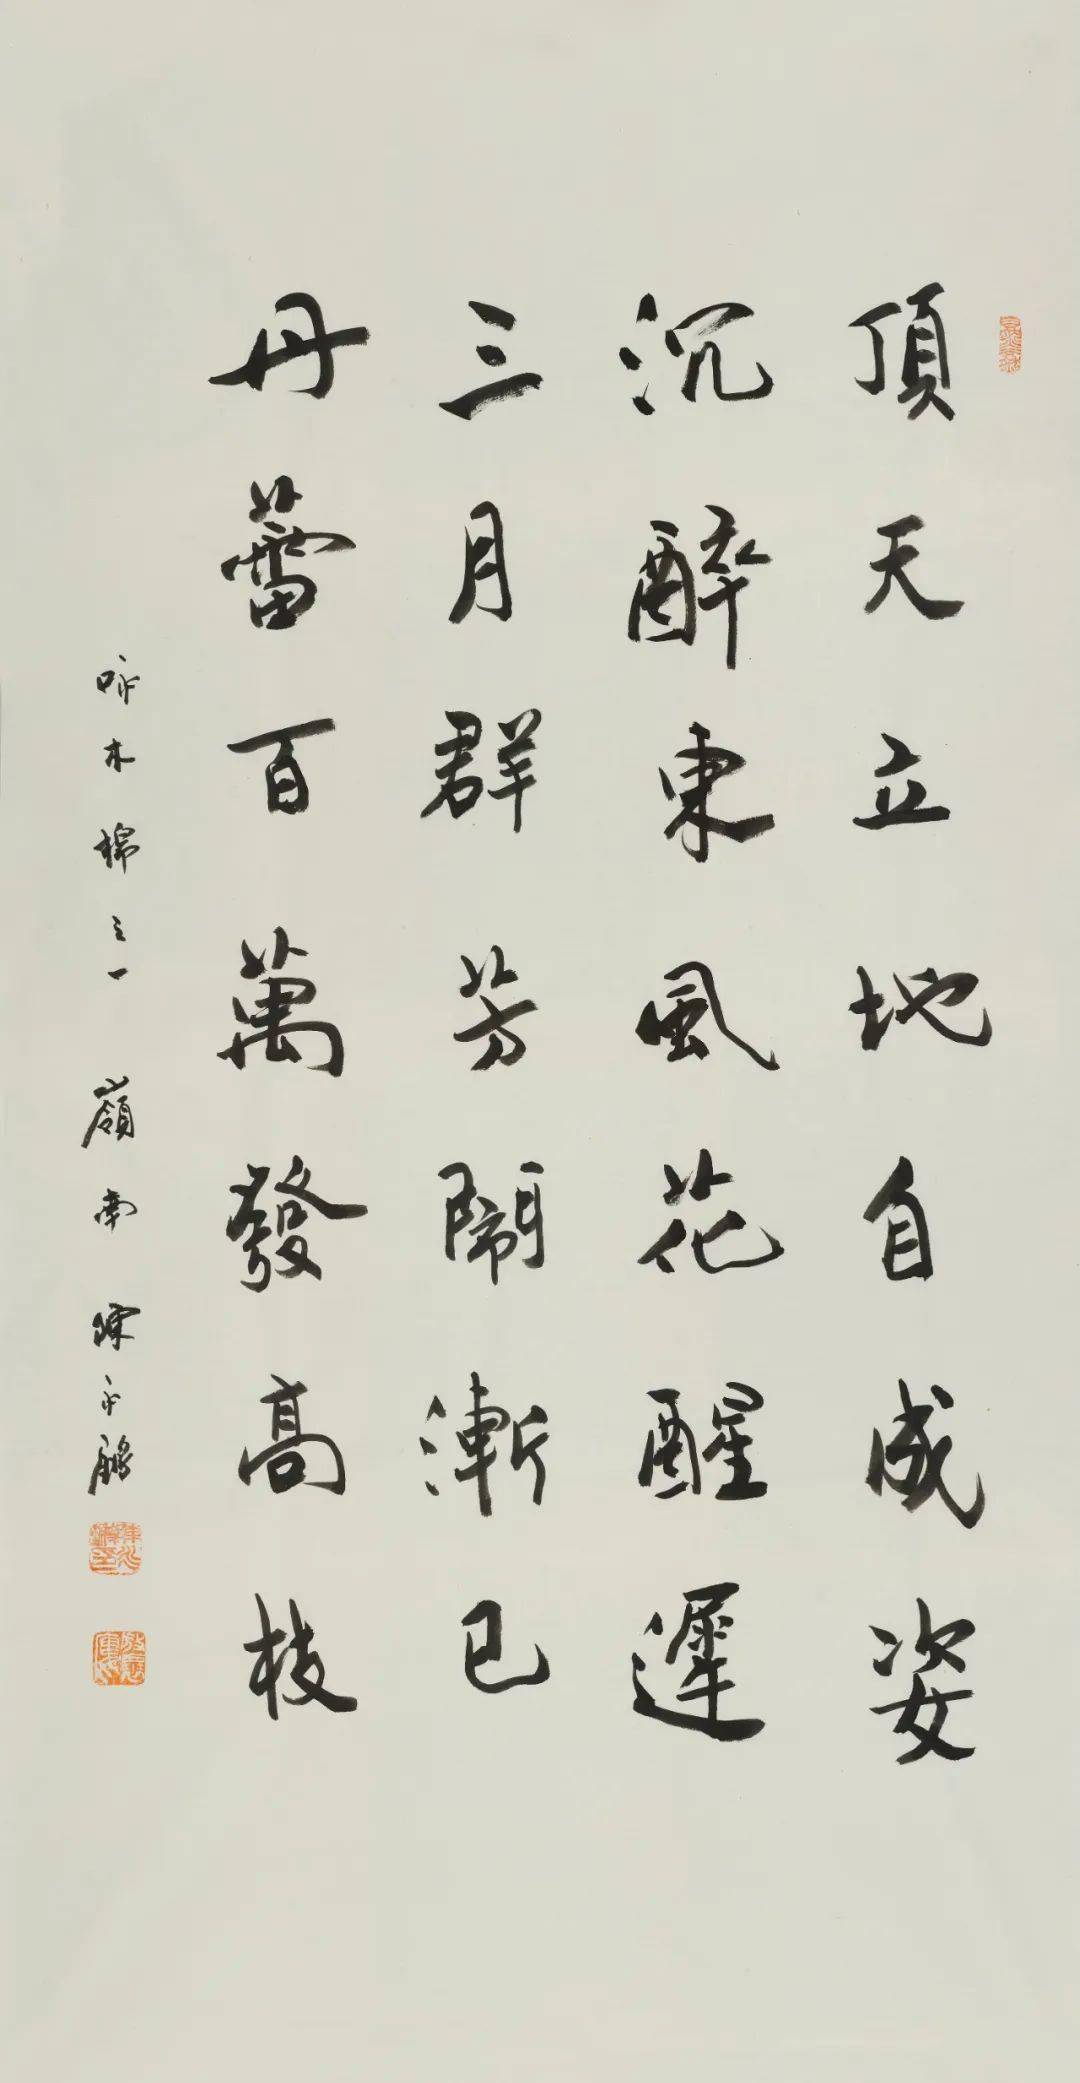 頂天立地自成姿
沉醉東風花醒遲
三月群芳鬧漸已
丹蕾百萬發高枝
咏木棉之一 嶺南 陳永鵬